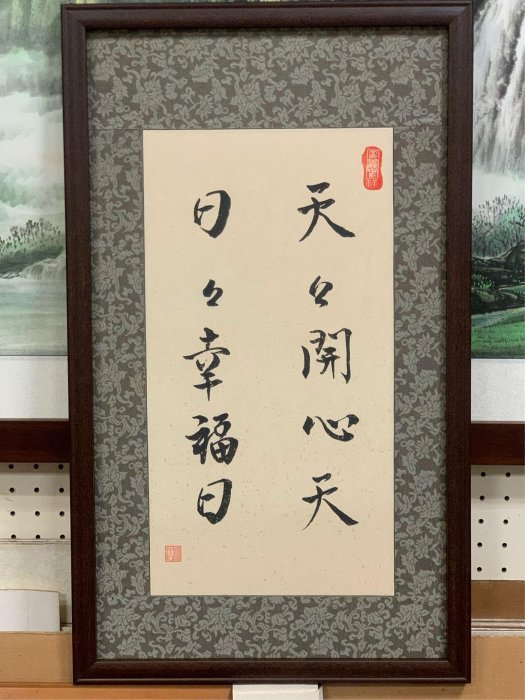 天々開心天
日々幸福日